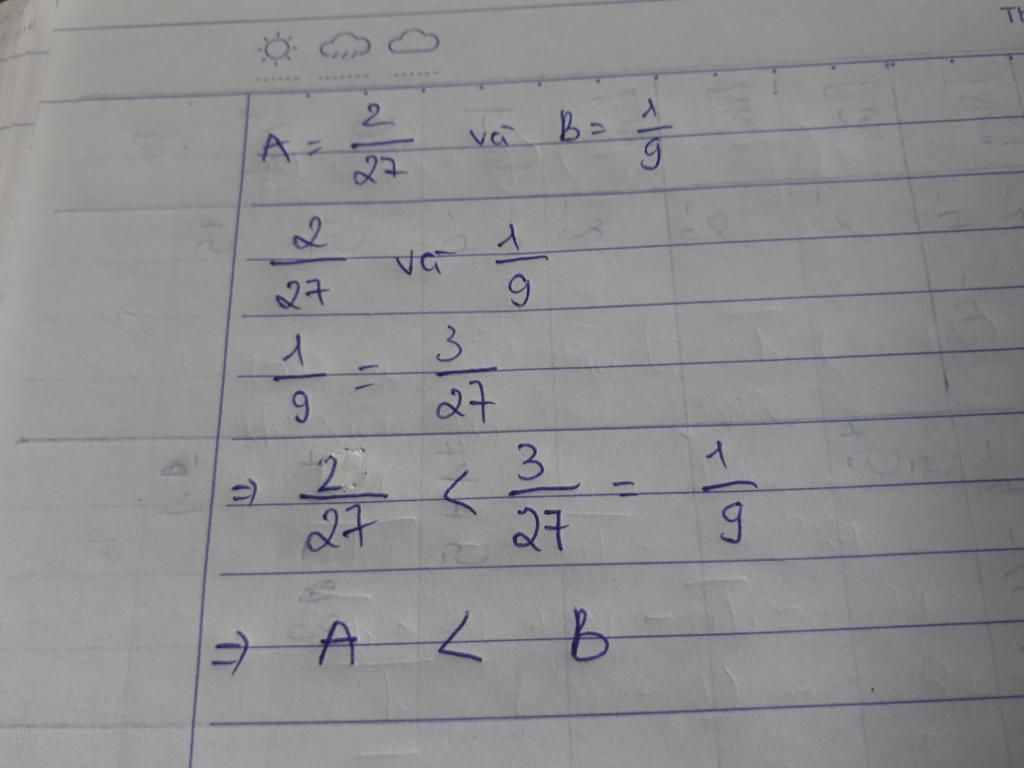 TH
A = 2/27 và B = 1/9
2/27 và 1/9
1/9 = 3/27
⇒ 2/27 < 3/27 = 1/9
⇒ A < B